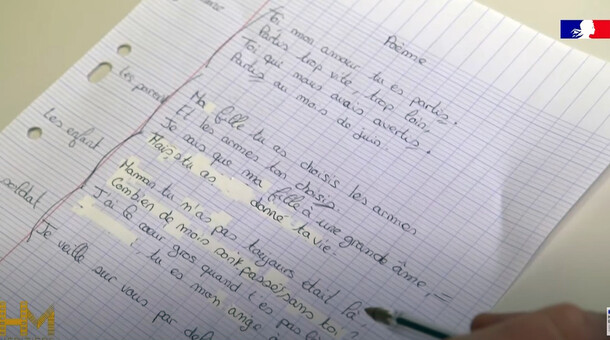 Poème
Toi mon amour tu es partis,
Partis trop vite, trop loin,
Toi qui nous avais avertis,
Partis au mois de juin.
Les parent
Ma fille tu as choisis les armes
Et les armes t'on choisis
Les enfant
Je sais que ma fille à une grande âme,
Mais tu as donné ta vie.
Maman tu n'as pas toujours était là,
Combien de mois sont passés sans toi
soldat
J'ai le cœur gros quand t'es pas là
, tu es mon ange
Je veille sur vous par
HM